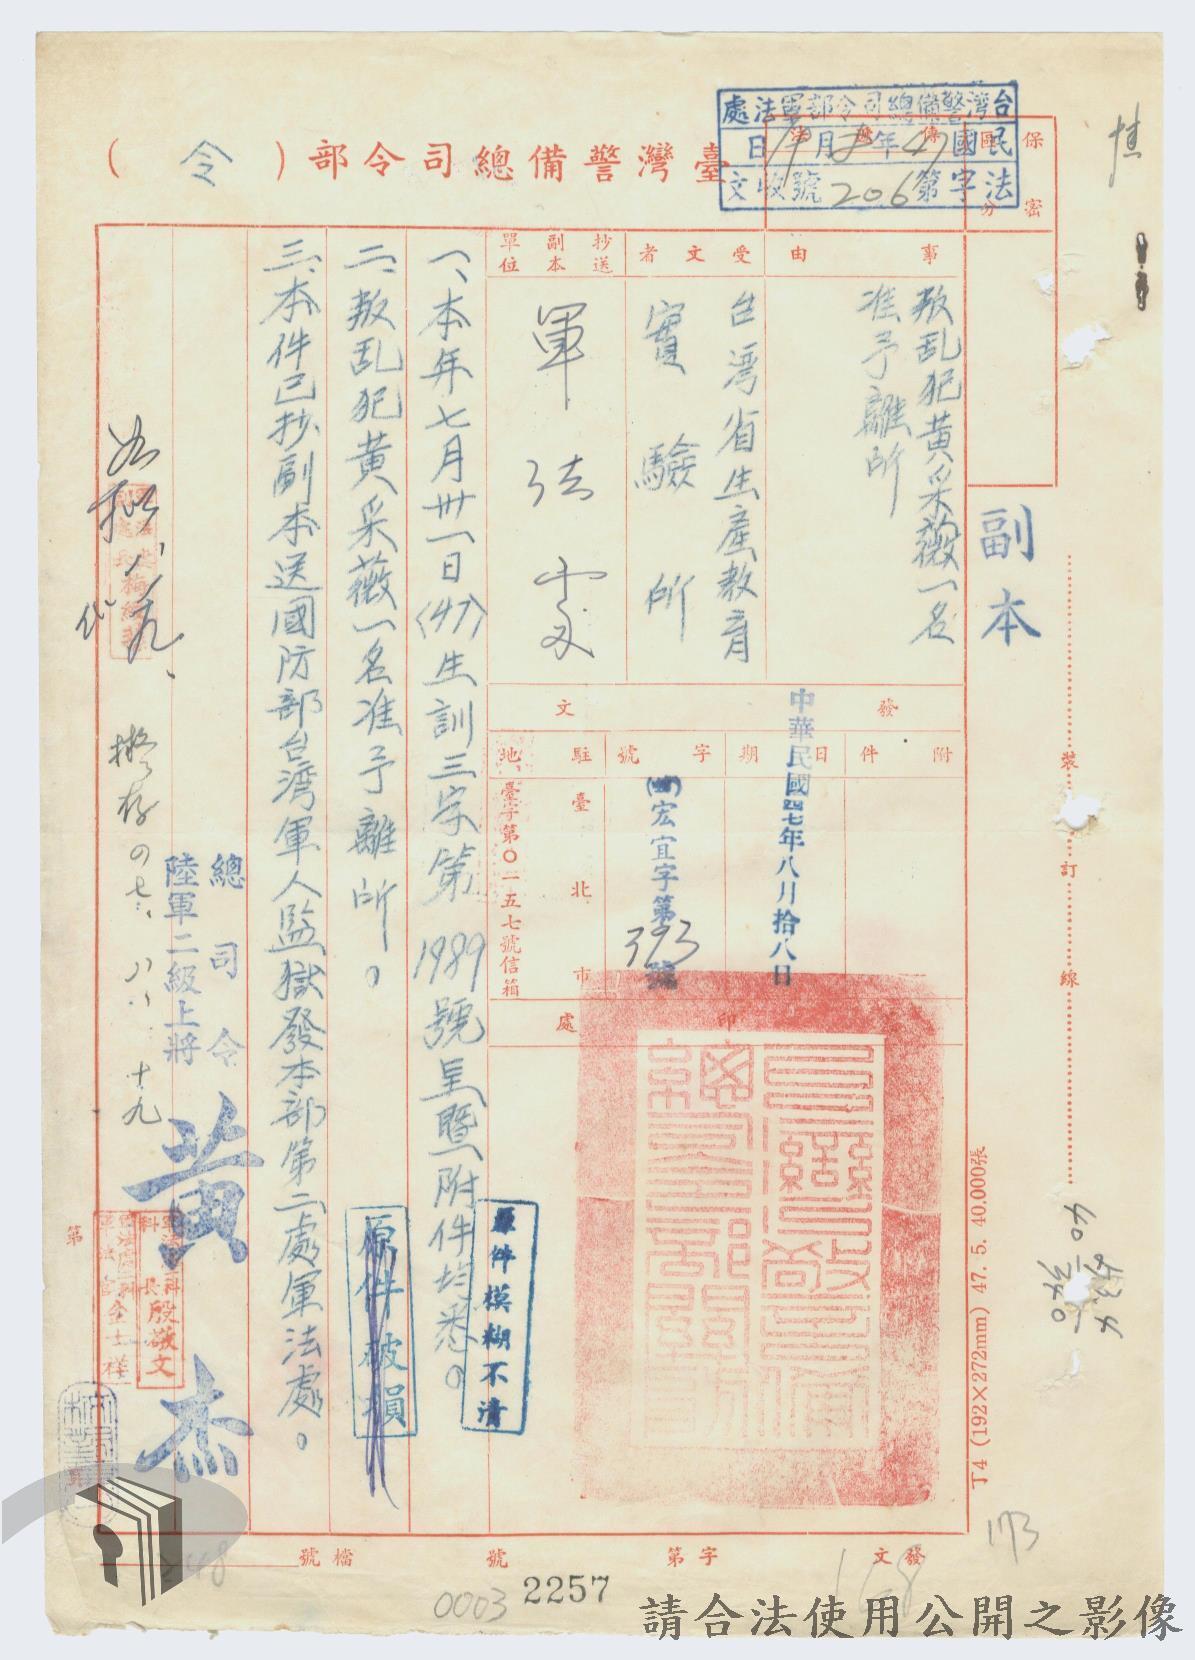 臺灣警備總司令部（令）
台灣警備總司令部軍法處
民國47年8月19日
法字第206號收文
保密
區分
副本
事由
叛乱犯黃采薇一名
准予離所
受文者
台灣省生產教育
實驗所
抄送副本單位
軍法處
發文
附件
日期
中華民國四七年八月拾八日
字號
宏宜字第393號
駐地
臺北市
臺字第〇一五七號信箱
印處
一、本年七月卅一日(47)生訓三字第1989號呈暨附件均悉。
二、叛乱犯黃采薇一名准予離所。
三、本件已抄副本送國防部台灣軍人監獄發本部第二處軍法處。
總司令
陸軍二級上將
黃杰
原件模糊不清
原件破損
如擬
擬存
四七、八、十九
科長殷敬文
裝訂線
T4 (192×272mm) 47. 5. 40,000張
173
發文
字第
號
檔號
168
248
0003
2257
請合法使用公開之影像